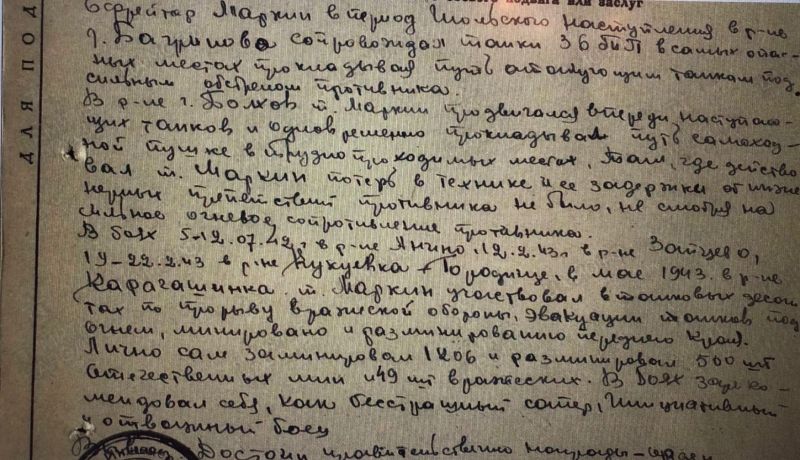 ДЛЯ ПОД
подвига или заслуг
Ефрейтор Маркин в период Июльского наступления в р-не
г. сопровождал танки 36 в самых опас-
ных местах прокладывая путь атакующим танкам под
сильным обстрелом противника.
В р-не г. Болхов т. Маркин продвигался впереди наступаю-
щих танков и одновременно прокладывал путь самоход-
ной пушке в трудно проходимых местах, там, где действо
вал т. Маркин потерь в технике и ее задержки от инже
нерных препятствий противника не было, не смотря на
сильное огневое сопротивление противника.
В боях 5-12.07.42г. в р-не 12.2.43г. в р-не Зайцево,
19-22.2.43 в р-не Кукуевка - Городище, в мае 1943. в р-не
Карагашинка т. Маркин участвовал в танковых десан
тах по прорыву вражеской обороны, эвакуации танков под
огнем, минировано и разминированию переднего края.
Лично сам заминировал 1206 и разминировал 500 шт
отечественных мин и 49 шт вражеских. В боях зареко-
мендовал себя, как бесстрашный сапер, инициативный
и отважный боец
Достоин правительственно награды -